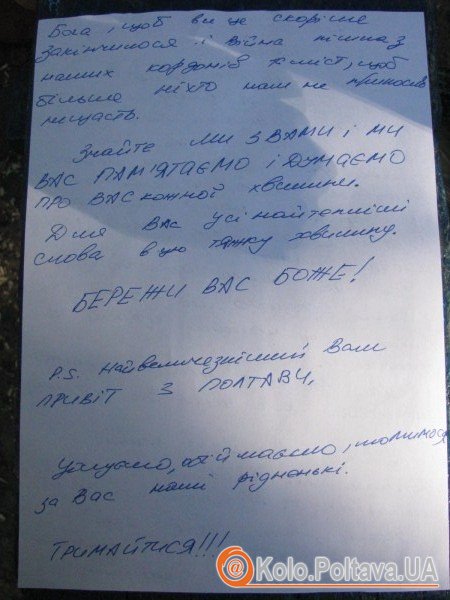 Бога, щоб ви це скоріше
закінчилося і війна пішла з
наших кордонів і міст, щоб
більше ніхто нам не приносив
нещасть.
Знайте ми з вами і ми
вас пам'ятаємо і думаємо
про вас кожної хвилини.
Для вас усі найтепліші
слова в цю тяжку хвилину.
БЕРЕЖИ ВАС БОЖЕ!
P.S. Найвеличезніший Вам
привіт з Полтави,
Цілуємо, обіймаємо, молимося
за Вас наші рідненькі.
ТРИМАЙТИСЯ!!!
Kolo.Poltava.UA